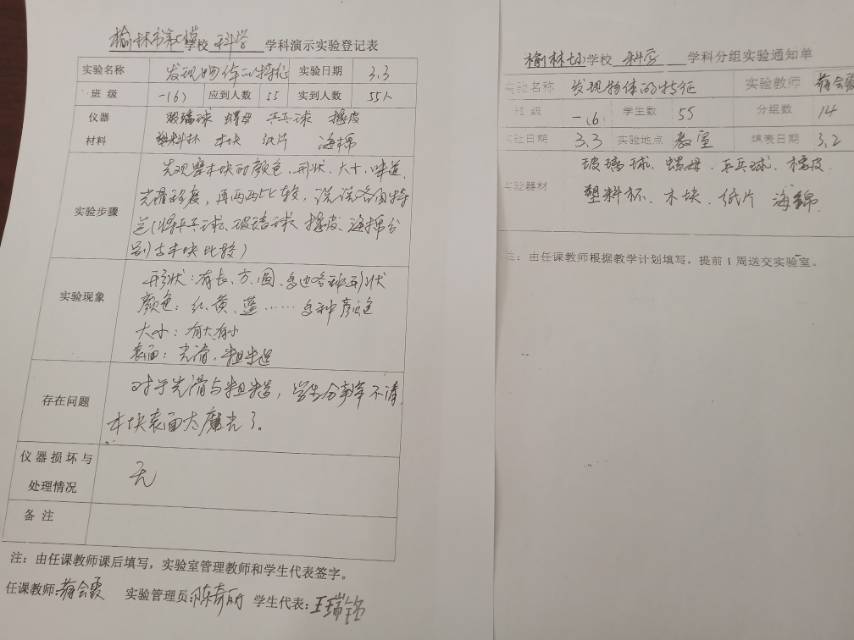 榆林市 学校 科学 学科演示实验登记表
实验名称 发现物体的特征 实验日期 3.3
班级 一(6) 应到人数 55 实到人数 55人
仪器 玻璃球 螺母 乒乓球 橡皮
材料 塑料杯 木块 纸片 海棉
实验步骤
先观察木块的颜色、形状、大小、味道、
光滑程度,再两两比较,说说各自特
(将乒乓球、玻璃球、橡皮、海棉分
别与木块比较)
实验现象
形状:有长、方、圆、多边各种形状
颜色:红、黄、蓝……各种颜色
大小:有大有小
表面:光滑、粗糙
存在问题
对于光滑与粗糙,学生分辨不清,
木块表面太磨光了。
仪器损坏与
处理情况
无
备注
注:由任课教师课后填写,实验室管理教师和学生代表签字。
任课教师: 实验管理员: 学生代表:王瑞铭
榆林 学校 科学 学科分组实验通知单
实验名称 发现物体的特征 实验教师
班级 一(6) 学生数 55 分组数 14
实验日期 3.3 实验地点 教室 填表日期 3.2
实验器材
玻璃球、螺母、乒乓球、橡皮、
塑料杯、木块、纸片 海锦
注:由任课教师根据教学计划填写,提前1周送交实验室。